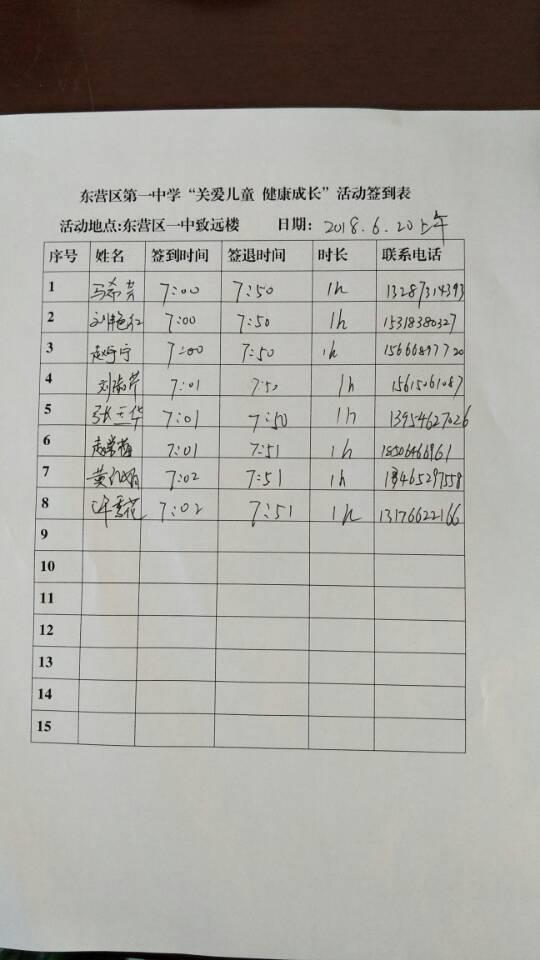 东营区第一中学“关爱儿童 健康成长”活动签到表
活动地点:东营区一中致远楼 日期: 2018.6.20上午
序号 姓名 签到时间 签退时间 时长 联系电话
1 马希芳 7:00 7:50 1h 13287314393
2 刘艳红 7:00 7:50 1h 15318380327
3 赵宁宁 7:00 7:50 1h 15666897720
4 刘海芹 7:01 7:50 1h 15615061087
5 张玉华 7:01 7:50 1h 13954627026
6 7:01 7:51 1h 18506466961
7 黄 娟 7:02 7:51 1h 13465297558
8 雪花 7:02 7:51 1h 13176622166
9
10
11
12
13
14
15